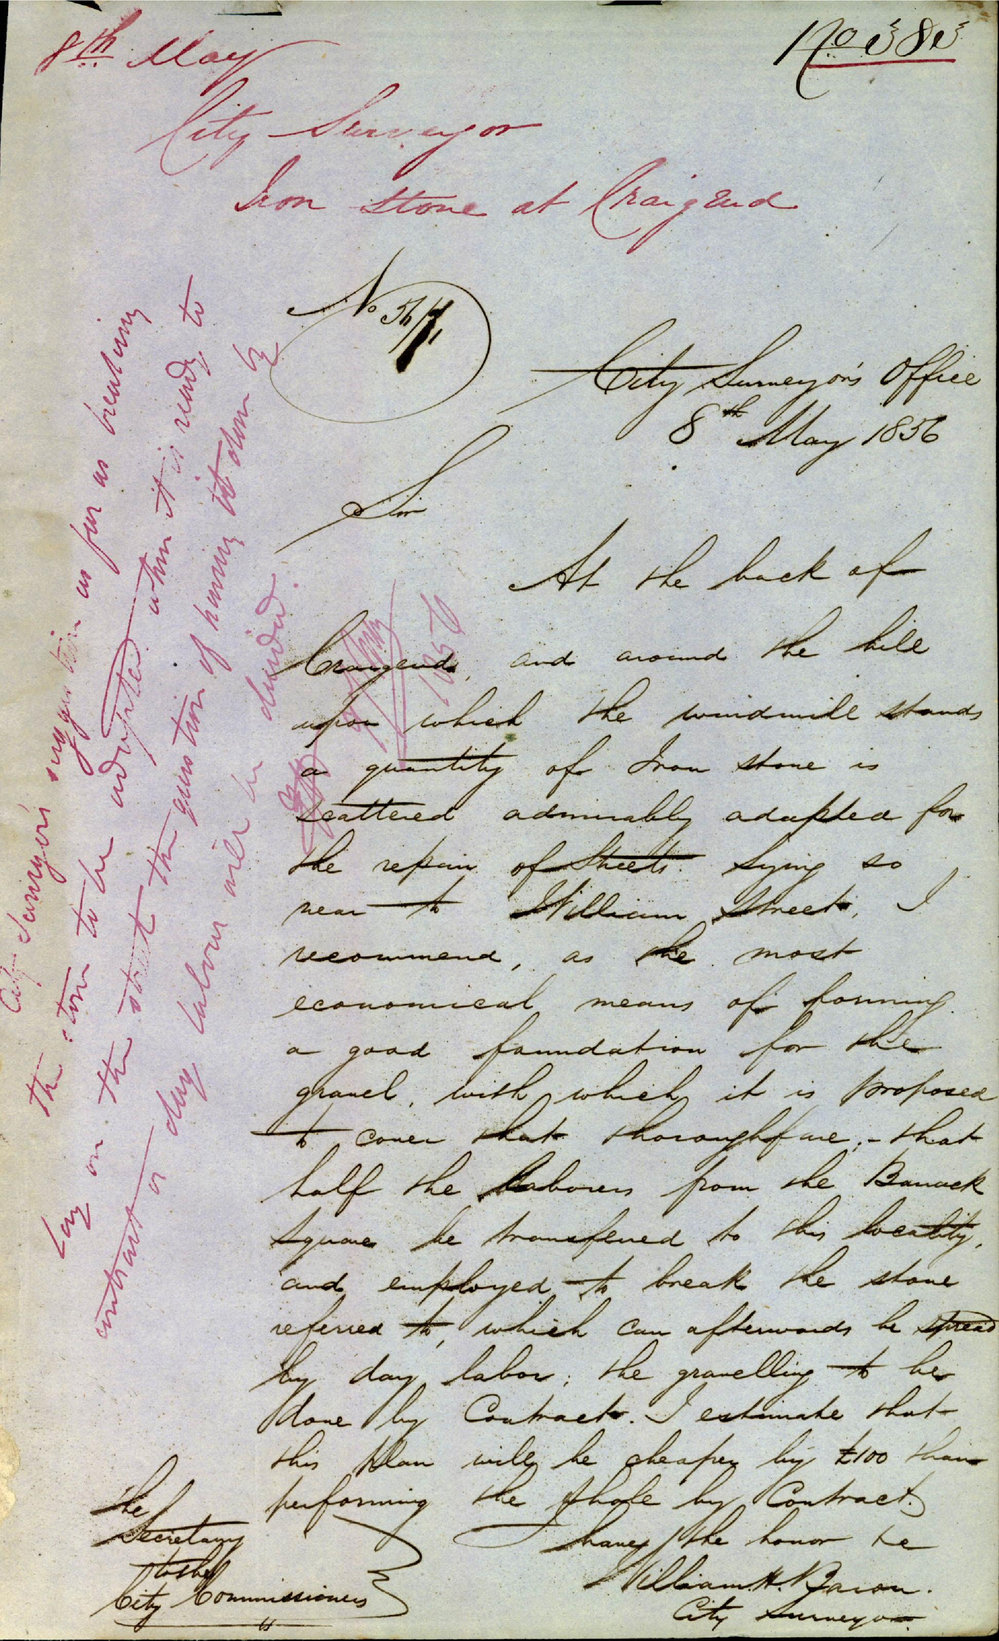 8th May
No 383
City Surveyor
Iron stone at Craigend
No 56/
City Surveyor's Office
8th May 1856
Sir
At the back of
Craigend, and around the hill
upon which the windmill stands
a quantity of Iron stone is
scattered admirably adapted for
the repair of Streets. Lying so
near to William Street, I
recommend, as the most
economical means of forming
a good foundation for the
gravel, with which it is proposed
to cover that thoroughfare, - that
half the laborers from the Barrack
Square be transferred to this locality,
and employed to break the stone
referred to, which can afterwards be spread
by day labor; the gravelling to be
done by Contract. I estimate that
this plan will be cheaper by £100 than
performing the whole by Contract.
I have the honor &c
William H. Baron.
City Surveyor
The
Secretary
to the
City Commissioners
City Surveyor's suggestion as far as breaking
the stone to be adopted when it is ready to
Lay on the street the question of having it done by
contract or day labour will be decided.
1856